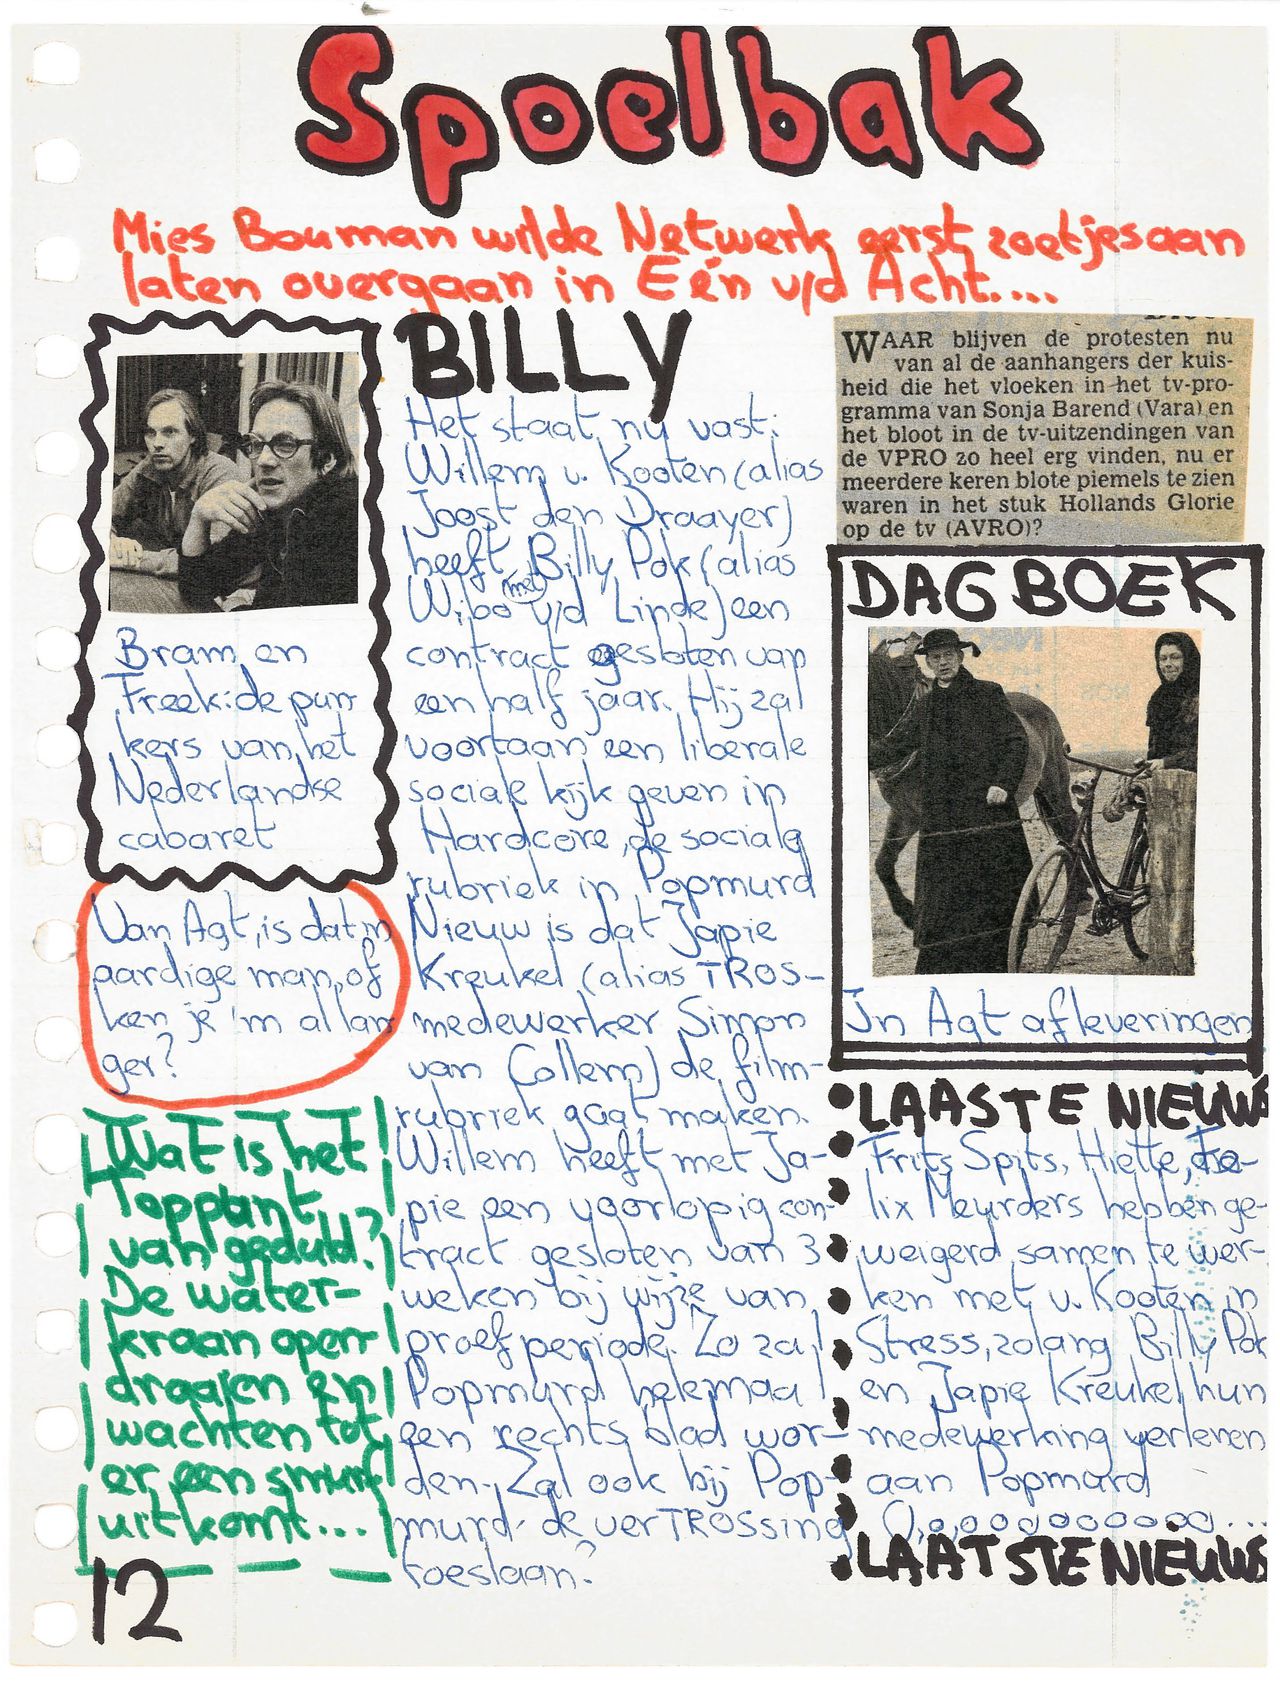 Spoelbak
Mies Bouman wilde Netwerk eerst zoetjesaan
laten overgaan in Eén v/d Acht....
Bram en
Freek: de pun-
kers van het
Nederlandse
cabaret
Van Agt, is dat 'n
aardige man, of
ken je 'm al lan
ger?
Wat is het
Toppunt
van geduld?
De water-
kraan open-
draaien en
wachten tot
er een smurf
uitkomt...
12
BILLY
Het staat nu vast:
Willem v. Kooten (alias
Joost den Draayer)
heeft Billy Pok (alias
Wibo v/d Linde) een
met
contract gesloten van
een half jaar. Hij zal
voortaan een liberale
sociale kijk geven in
Hardcore, de sociale
rubriek in Popmurd
Nieuw is dat Japie
Kreukel (alias TROS-
medewerker Simon
van Collem) de film-
rubriek gaat maken.
Willem heeft met Ja-
pie een voorlopig con-
tract gesloten van 3
weken bij wijze van
proefperiode. Zo zal
Popmurd helemaal
een rechts blad wor-
den. Zal ook bij Pop-
murd de verTROSsing
toeslaan?
WAAR blijven de protesten nu
van al de aanhangers der kuis-
heid die het vloeken in het tv-pro-
gramma van Sonja Barend (Vara) en
het bloot in de tv-uitzendingen van
de VPRO zo heel erg vinden, nu er
meerdere keren blote piemels te zien
waren in het stuk Hollands Glorie
op de tv (AVRO)?
DAGBOEK
In Agt afleveringen
LAASTE NIEUWS
Frits Spits, Hiette, Fe-
lix Meurders hebben ge-
weigerd samen te wer-
ken met v. Kooten in
Stress, zolang Billy Pok
en Japie Kreukel hun
medewerking verlenen
aan Popmurd
O,o,o,oooooooooo...
LAATSTE NIEUWS